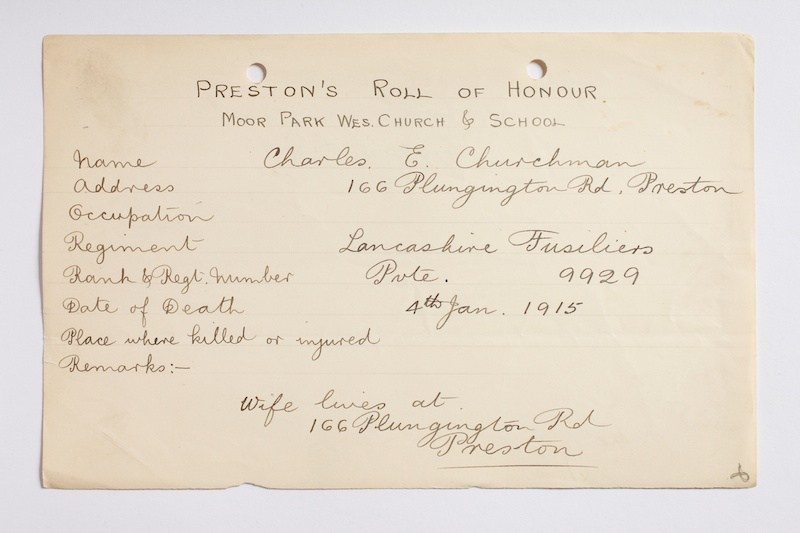 PRESTON'S ROLL OF HONOUR.
MOOR PARK WES. CHURCH & SCHOOL
Name Charles. E. Churchman
Address 166 Plungington Rd, Preston
Occupation
Regiment Lancashire Fusiliers
Rank & Regt. Number Pvte. 9929
Date of Death 4th Jan. 1915
Place where killed or injured
Remarks:-
Wife lives at
166 Plungington Rd
Preston